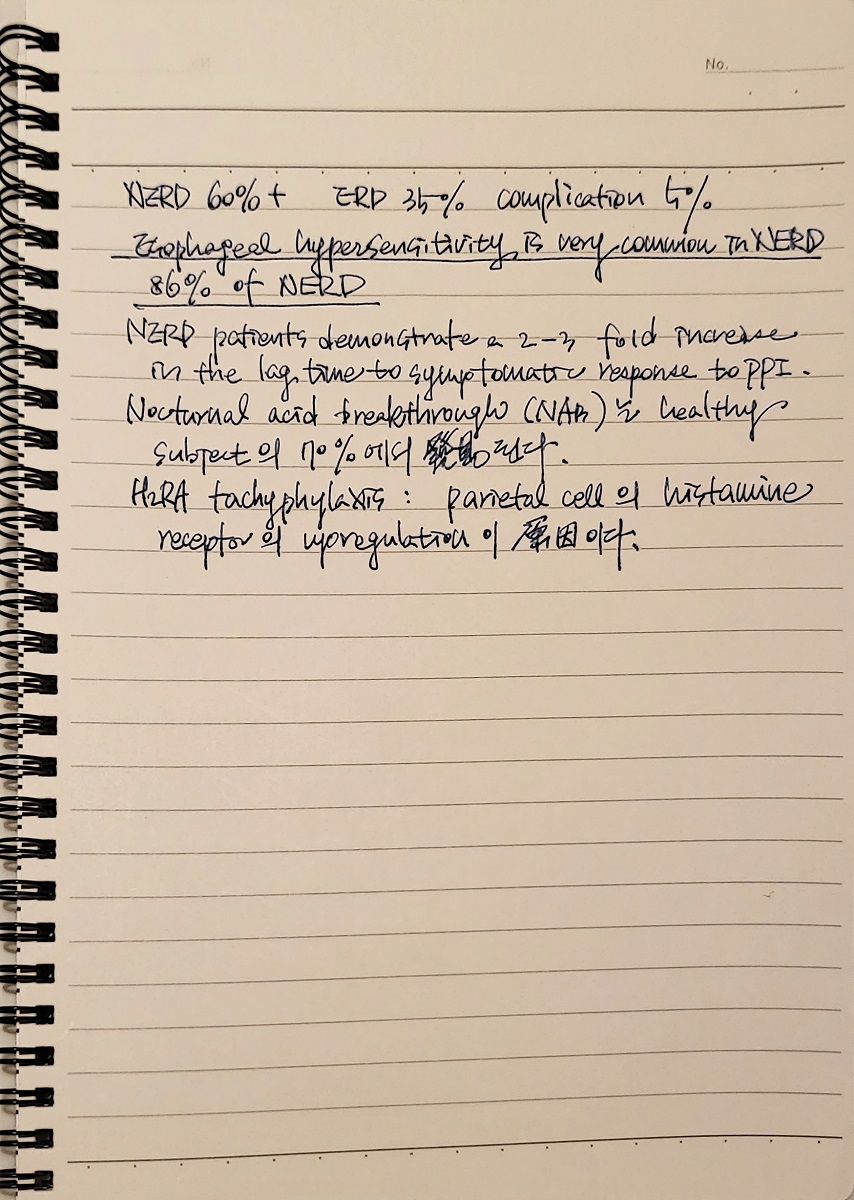 No.
NERD 60%+ ERD 35% complication 5%
Esophageal hypersensitivity is very common in NERD
86% of NERD
NERD patients demonstrate a 2-3 fold increase
in the lag time to symptomatic response to PPI.
Nocturnal acid breakthrough (NAB)는 healthy
subject의 70%에서 된다.
H2RA tachyphylaxis : parietal cell의 histamine
receptor의 upregulation이 原因이다.